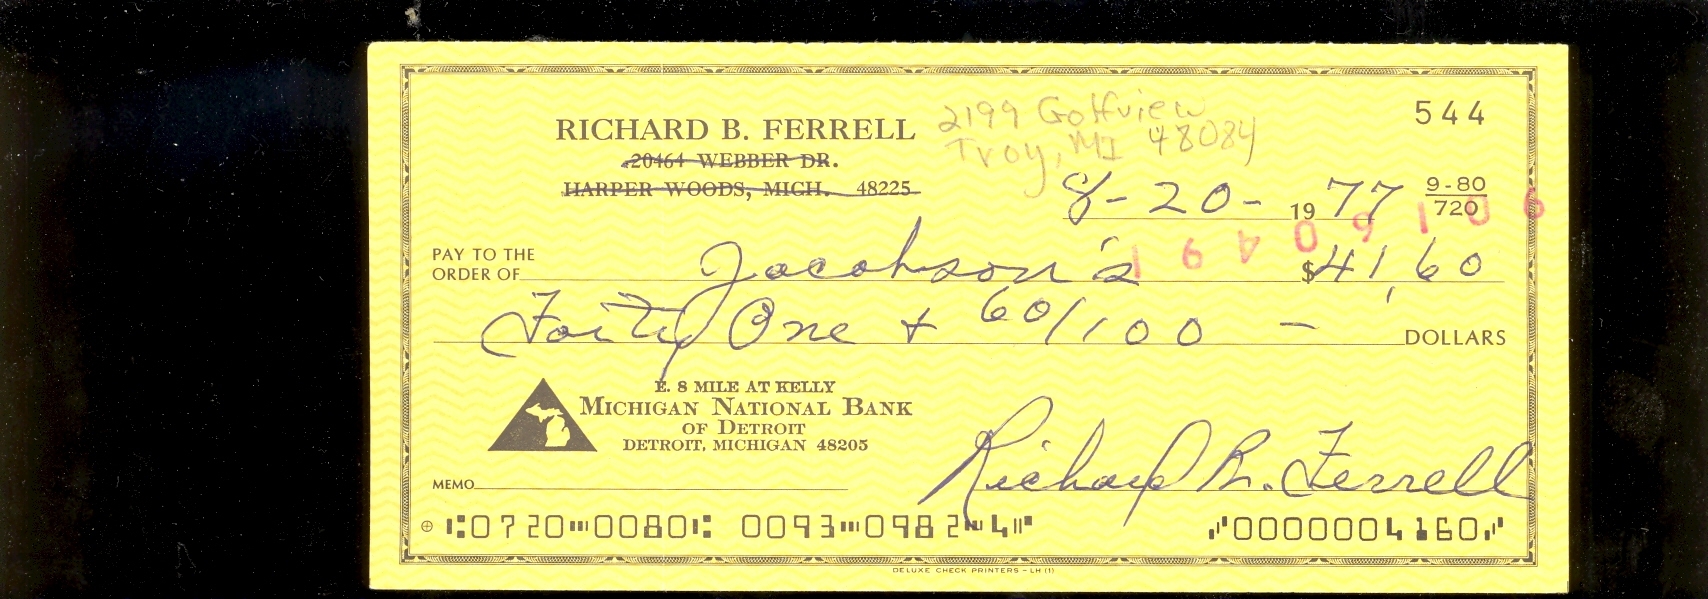 RICHARD B. FERRELL
20464 WEBBER DR.
HARPER WOODS, MICH. 48225
2199 Golfview
Troy, MI 48084
544
8-20-1977
9-80
720
PAY TO THE
ORDER OF Jacobson's $41,60
Forty One + 60/100 - DOLLARS
E. 8 MILE AT KELLY
MICHIGAN NATIONAL BANK
OF DETROIT
DETROIT, MICHIGAN 48205
Richard B. Ferrell
MEMO
⑆0720⑉0080⑆ 0093⑉0982⑉4⑈ ⑇0000004160⑇
DELUXE CHECK PRINTERS - LH (1)